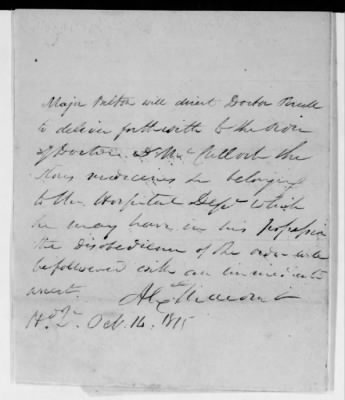 Major Pelton will direct Doctor Purcell
to deliver forthwith to the Order
of Doctor Mc Culloch the
Hors medicines &c belonging
to the Hospital Dept which
he may have in his possession
the disobedience of the order will
be followed with an immediate
arrest.
Hd Qr Oct. 16. 1815